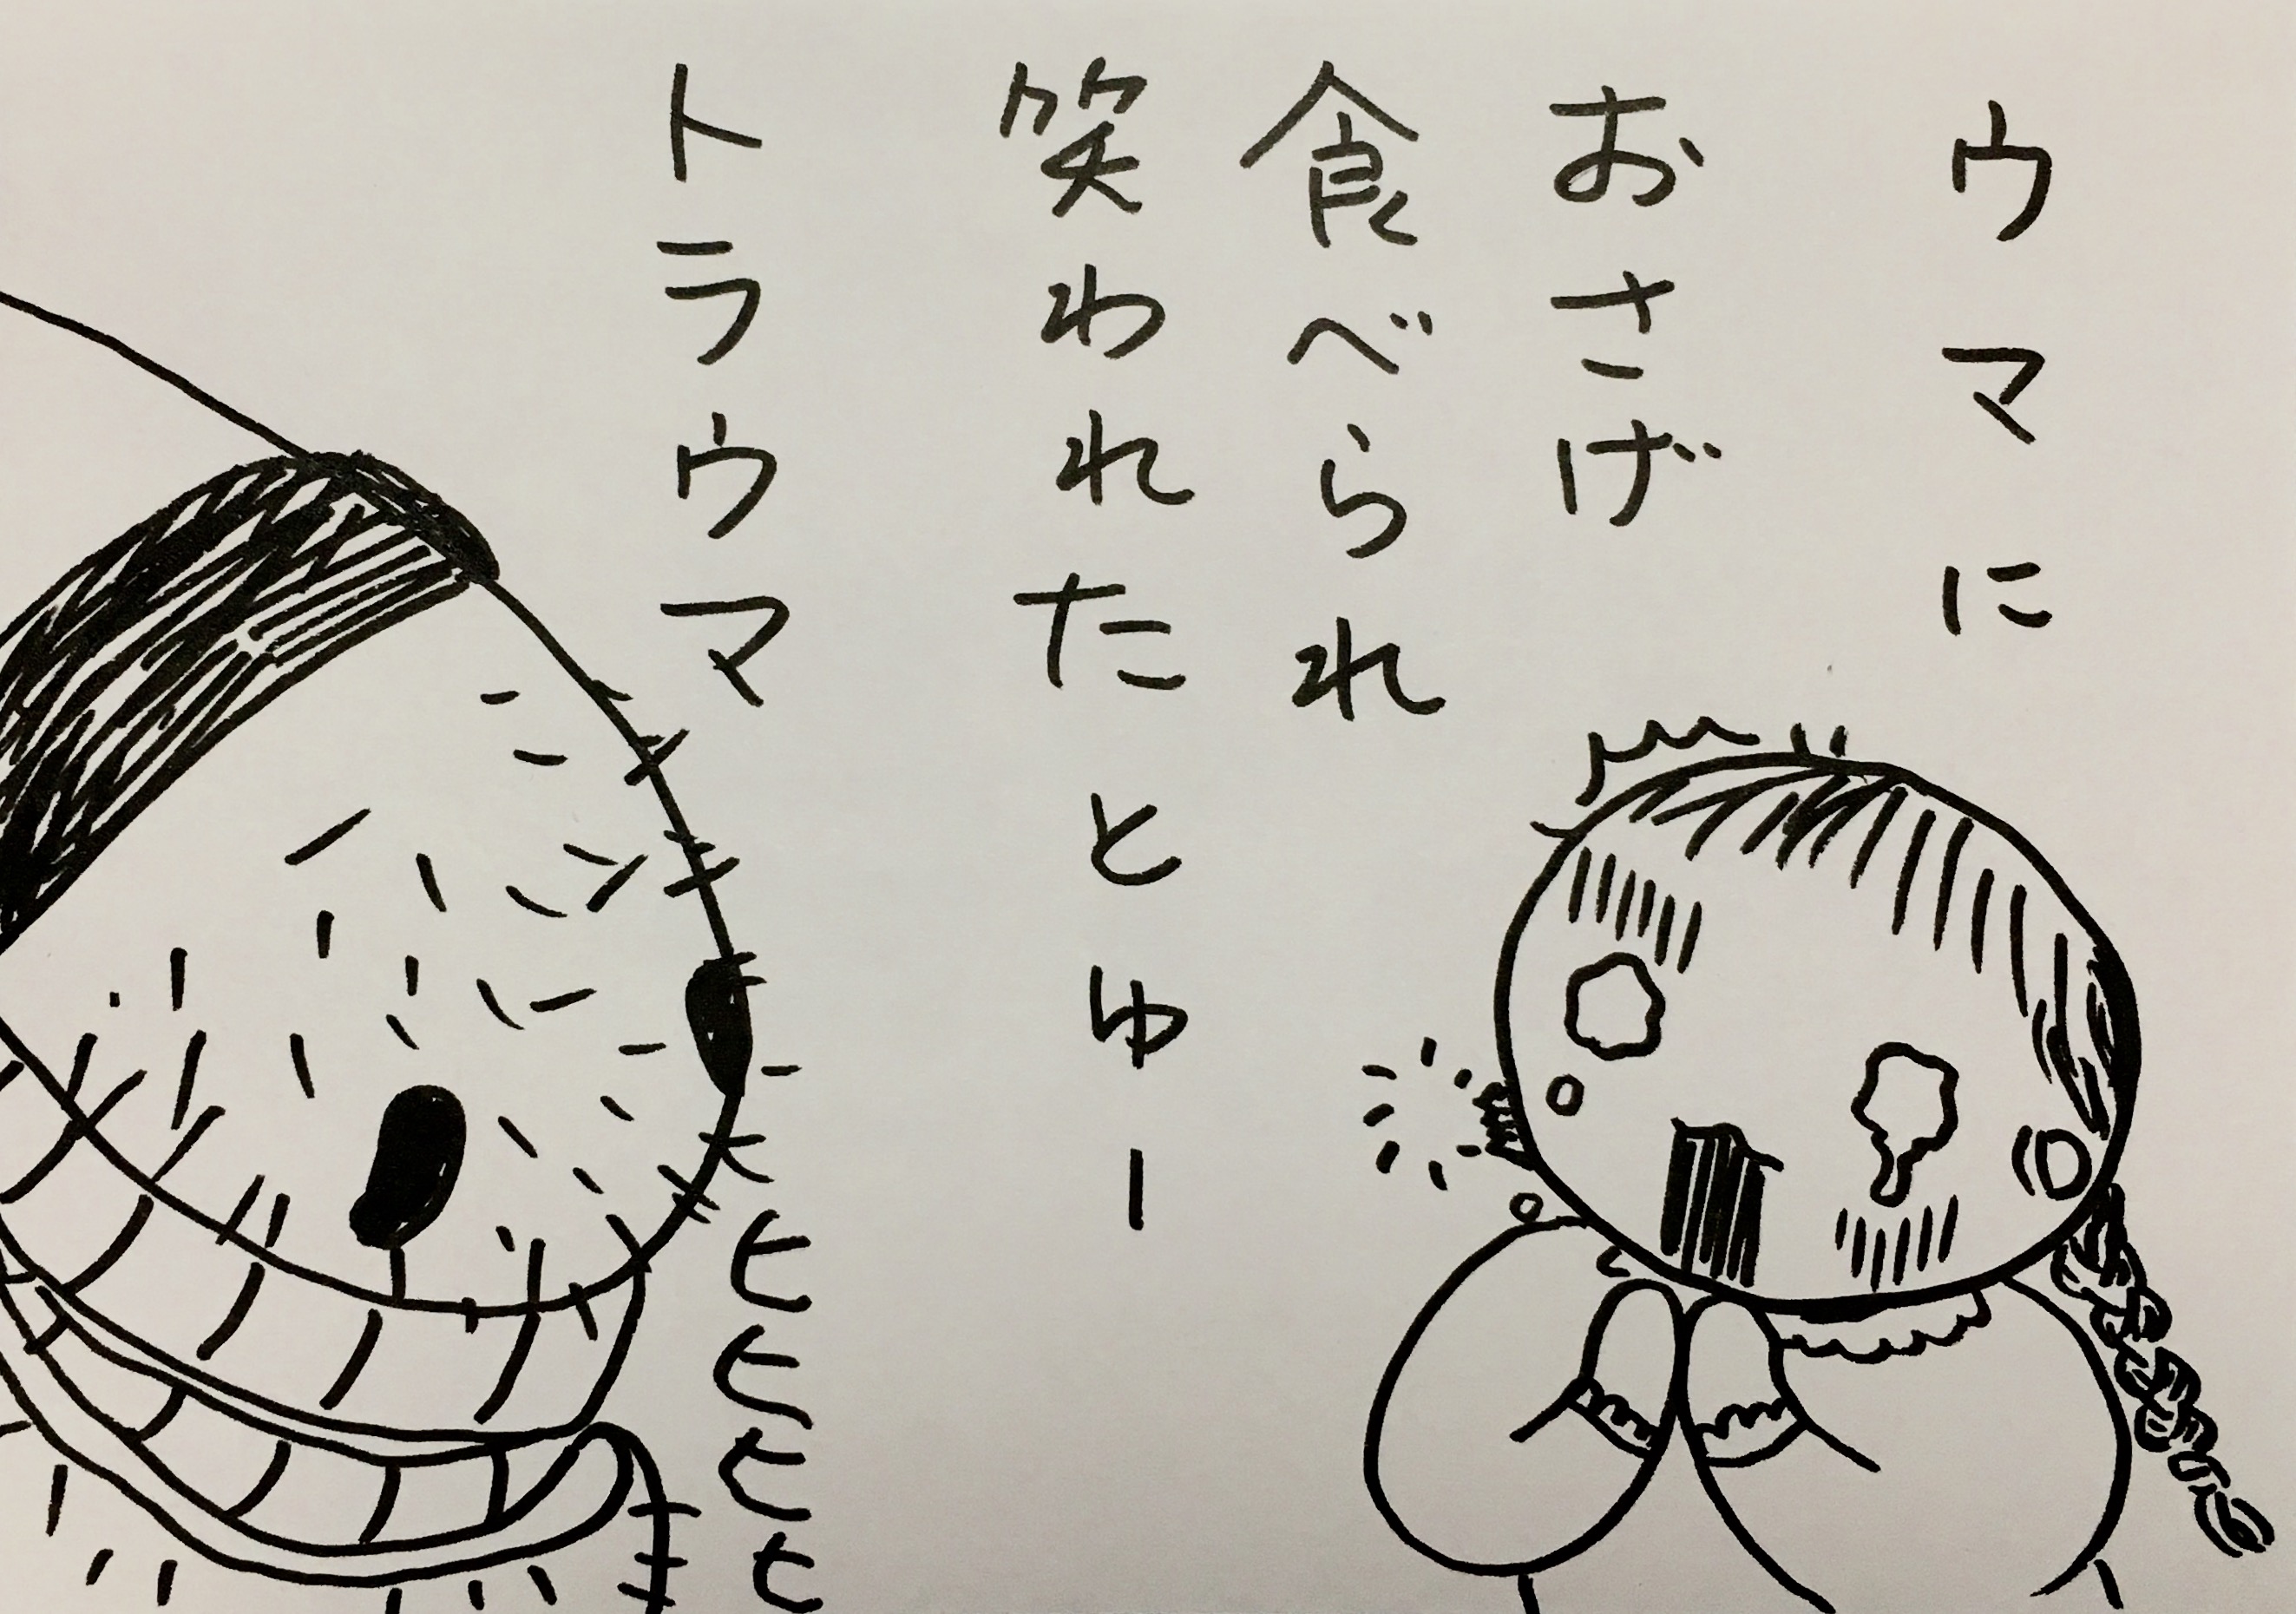 ウマに
おさげ
食べられ
笑われたとゆー
トラウマ
ヒヒヒヒ